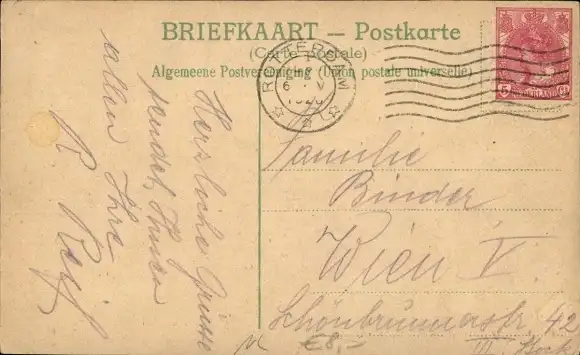 BRIEFKAART — Postkarte
(Carte postale)
Algemeene Postvereeniging (Union postale universelle)
ROTTERDAM
6 V
5 Ct
NEDERLAND
Herzliche Grüsse
sendet Ihnen
allen Ihre
R. Reif
Familie
Binder
Wien V.
Schönbrunnerstr. 42
III Stock
€8,-